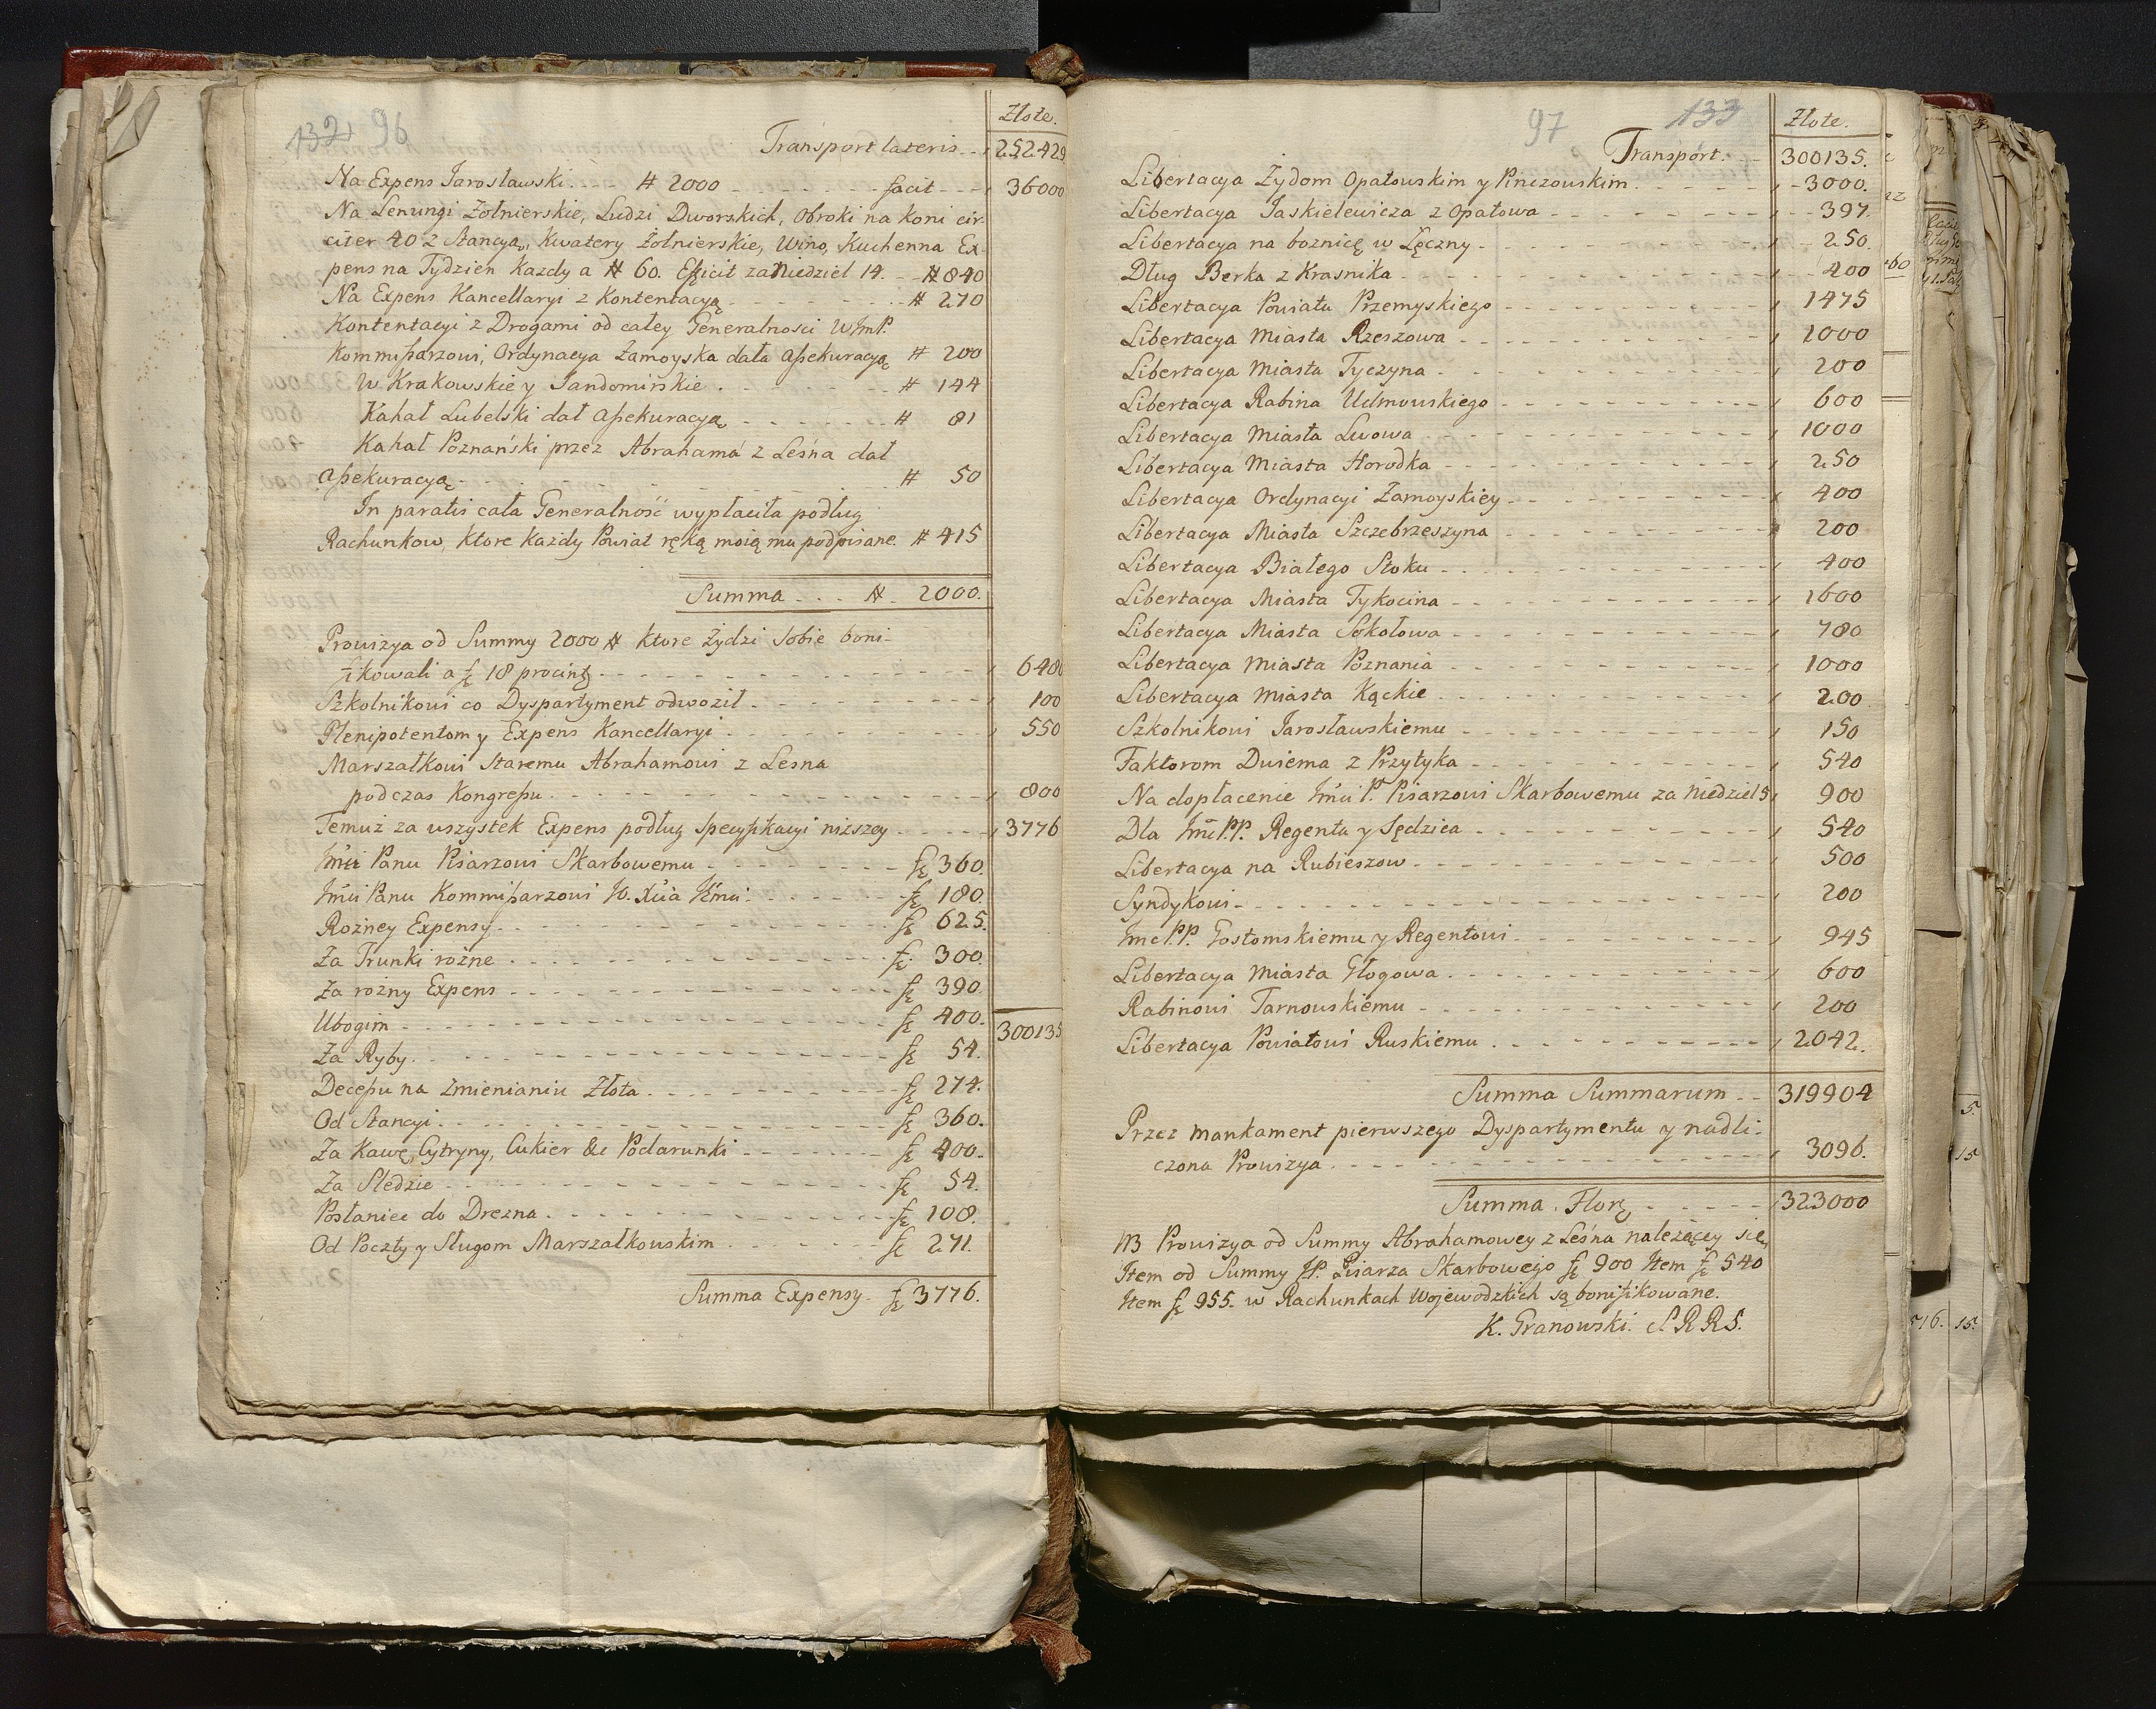 132 96
Złote.
Transport lateris 252429
Na Expens Jarosławski # 2000 facit 36000
Na Lenungi Żołnierskie, Ludzi Dworskich, Obroki na koni cir-
citer 40 z Stancyą, Kwatery Żołnierskie, Wino, Kuchenna Ex-
pens na Tydzień Kazdy a # 60. Efficit za Niedziel 14. # 840
Na Expens Kancellaryi z Kontentacyą # 270
Kontentacyi z Drogami od całey Generalnosci WJmP.
Kommißarzowi, Ordynacya Zamoyska dała aßekuracyą # 200
W Krakowskie y Sandomirskie # 144
Kahał Lubelski dał aßekuracyą # 81
Kahał Poznański przez Abrahama z Leśna dał
aßekuracyą # 50
In paratis cała Generalność wypłaciła podług
Rachunkow, Ktore Kazdy Powiat ręką moią ma podpisane. # 415
Summa # 2000.
Prowizya od Summy 2000 # Ktore Żydzi sobie boni-
fikowali a fl 18 procintę 6480
Szkolnikowi co Dyspartyment odwoził 100
Plenipotentom y Expens Kancellaryi 550
Marszałkowi Staremu Abrahamowi z Lesna
podczas Kongreßu 800
Temuż za wszystek Expens podług specyfikacyi nizszey 3776
Jmci Panu Pisarzowi Skarbowemu fl 360.
Jmci Panu Kommißarzowi JO. Xcia Jmci fl 180.
Rozney Expensy fl 625.
Za Trunki rozne fl 300.
Za rozny Expens fl 390.
Ubogim fl 400.
300135
Za Ryby fl 54.
Deceßu na Zmienianiu Złota fl 274.
Od Stancyi fl 360.
Za Kawę, Cytryny, Cukier &c Podarunki fl 400.
Za Sledzie fl 54.
Posłaniec do Drezna fl 108.
Od Poczty y Sługom Marszałkowskim fl 271.
Summa Expensy fl 3776.
97 133
Złote.
Transpórt 300135.
Libertacya Żydom Opatowskim y Pinczowskim 3000.
Libertacya Jaskielewicza z Opatowa 397.
Libertacya na boznicę w Łęczny 250.
Dług Berka z Krasnika 400
Libertacya Powiatu Przemyskiego 1475
Libertacya Miasta Rzeszowa 1000
Libertacya Miasta Tyczyna 200
Libertacya Rabina Uclmowskiego 600
Libertacya Miasta Lwowa 1000
Libertacya Miasta Horodka 250
Libertacya Ordynacyi Zamoyskiey 400
Libertacya Miasta Szczebrzeszyna 200
Libertacya Białego Stoku 400
Libertacya Miasta Tykocina 1600
Libertacya Miasta Sokołowa 780
Libertacya Miasta Poznania 1000
Libertacya Miasta Kąckie 200
Szkolnikowi Jarosławskiemu 150
Faktorom Dwiema z Przytyka 540
Na dopłacenie Jmci P. Pisarzowi Skarbowemu za Niedziel 5 900
Dla Jmc PP. Regenta y Sędzica 540
Libertacya na Rubieszow 500
Syndykowi 200
Jmc PP. Gostomskiemu y Regentowi 945
Libertacya Miasta Głogowa 600
Rabinowi Tarnowskiemu 200
Libertacya Powiatowi Ruskiemu 2042.
Summa Summarum 319904
Przez mankament pierwszego Dyspartymentu y nadli-
czona Prowizya 3096.
Summa Flor. 323000
NB Prowizya od Summy Abrahamowey z Leśna należącey się,
Item od Summy JP. Pisarza Skarbowego fl 900 Item fl 540
Item fl 955. w Rachunkach Wojewodzkich są bonifikowane.
K. Granowski. S.R.R.S.